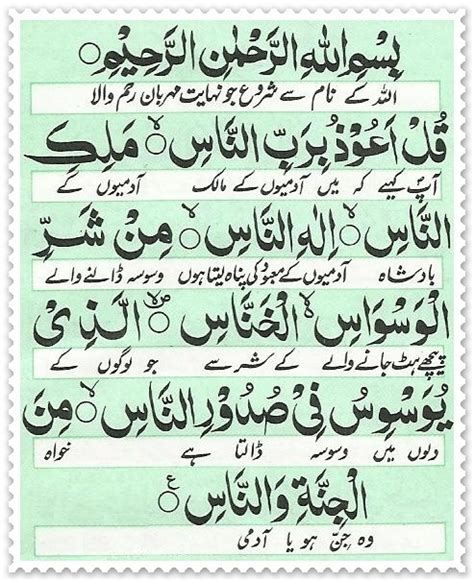 بِسْمِ اللهِ الرَّحْمٰنِ الرَّحِيْمِ ○
اللہ کے نام سے شروع جو نہایت مہربان رحم والا
قُلْ اَعُوْذُ بِرَبِّ النَّاسِ ○ۙ مَلِكِ
آپؐ کہیے کہ میں آدمیوں کے مالک آدمیوں کے
النَّاسِ ○ۙ اِلٰهِ النَّاسِ ○ۙ مِنْ شَرِّ
بادشاہ آدمیوں کے معبود کی پناہ لیتا ہوں وسوسہ ڈالنے والے
الْوَسْوَاسِ ۙ الْخَنَّاسِ ○ۙ الَّذِيْ
پیچھے ہٹ جانے والے کے شر سے جو لوگوں کے
يُوَسْوِسُ فِيْ صُدُوْرِ النَّاسِ ○ۙ مِنَ
دلوں میں وسوسہ ڈالتا ہے خواہ
الْجِنَّةِ وَالنَّاسِ ○ع
وہ جن ہو یا آدمی